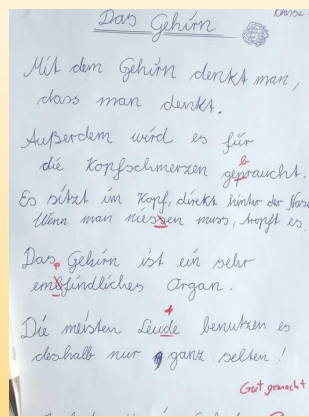 Das Gehirn
Klasse
Mit dem Gehirn denkt man,
dass man denkt.
Außerdem wird es für
die Kopfschmerzen gepraucht.
b
Es sitzt im Kopf, direkt hinter der Nase
Wenn man niessen muss, tropft es
Das Gehirn ist ein sehr
p
emfindliches Organ.
t
Die meisten Leude benutzen es
deshalb nur ganz selten!
Gut gemacht